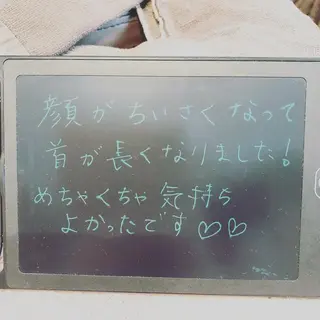 顔がちいさくなって
首が長くなりました!
めちゃくちゃ気持ち
よかったです♡♡